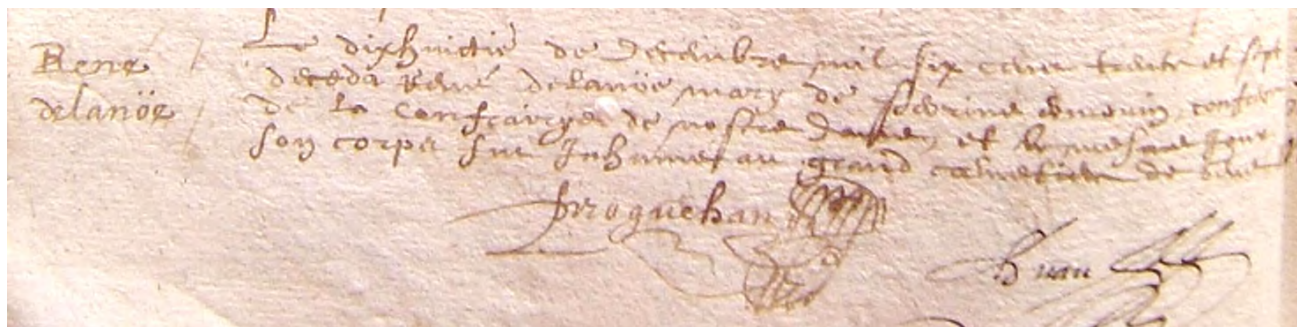 René
delanöe
Le dixhuictie de decembre mil six cens trente et sept
deceda René delanöe mary de
de la Confrairye de nostre Dame, et le mesme jour
son corps fut Inhumé au grand cimetiere de